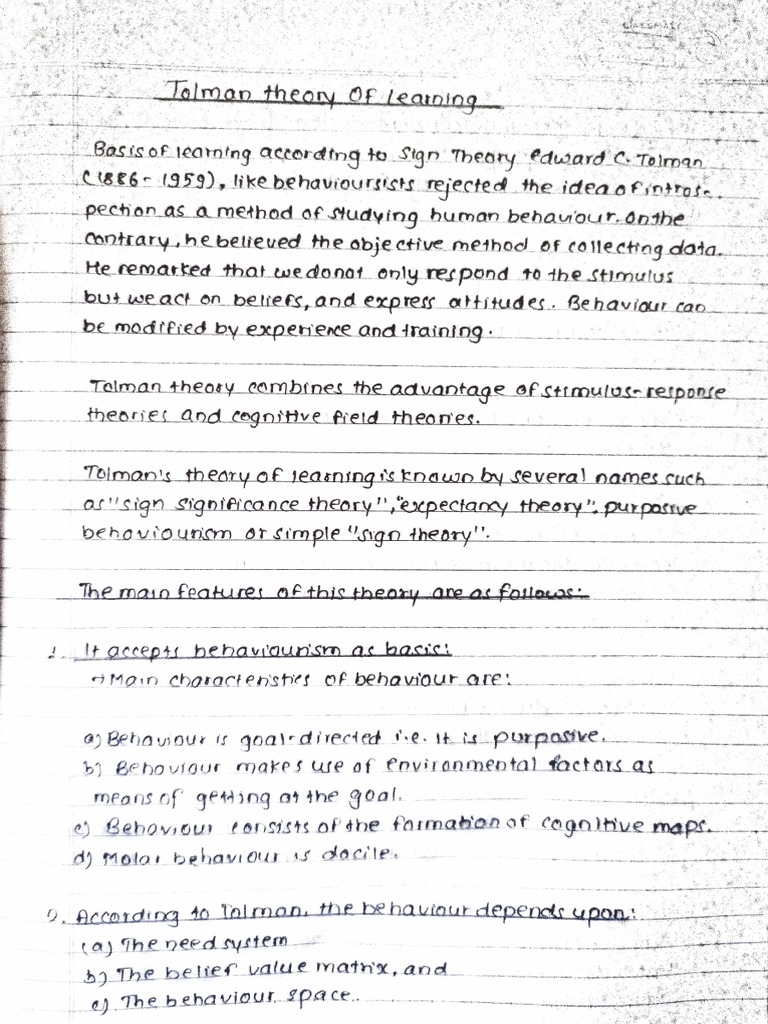 classmate
Tolman theory Of Learning
Basis of learning according to Sign Theory edward C. Tolman
(1886 - 1959), like behavioursists rejected the idea of intros-
pection as a method of studying human behaviour. On the
contrary, he believed the objective method of collecting data.
He remarked that we donot only respond to the stimulus
but we act on beliefs, and express attitudes. Behaviour can
be modified by experience and training.
Tolman theory combines the advantage of stimulus-response
theories and cognitive field theories.
Tolman's theory of learning is known by several names such
as "sign significance theory", "expectancy theory". purposive
behaviourism or simple "sign theory".
The main features of this theory are as follows:
1. It accepts behaviourism as basis:
→ Main characteristics of behaviour are:
a) Behaviour is goal-directed i.e. it is purposive.
b) Behaviour makes use of environmental factors as
means of getting at the goal.
c) Behaviour consists of the formation of cognitive maps.
d) Molar behaviour is docile.
2. According to Tolman, the behaviour depends upon:
(a) The need system
b) The belief value matrix, and
c) The behaviour space.